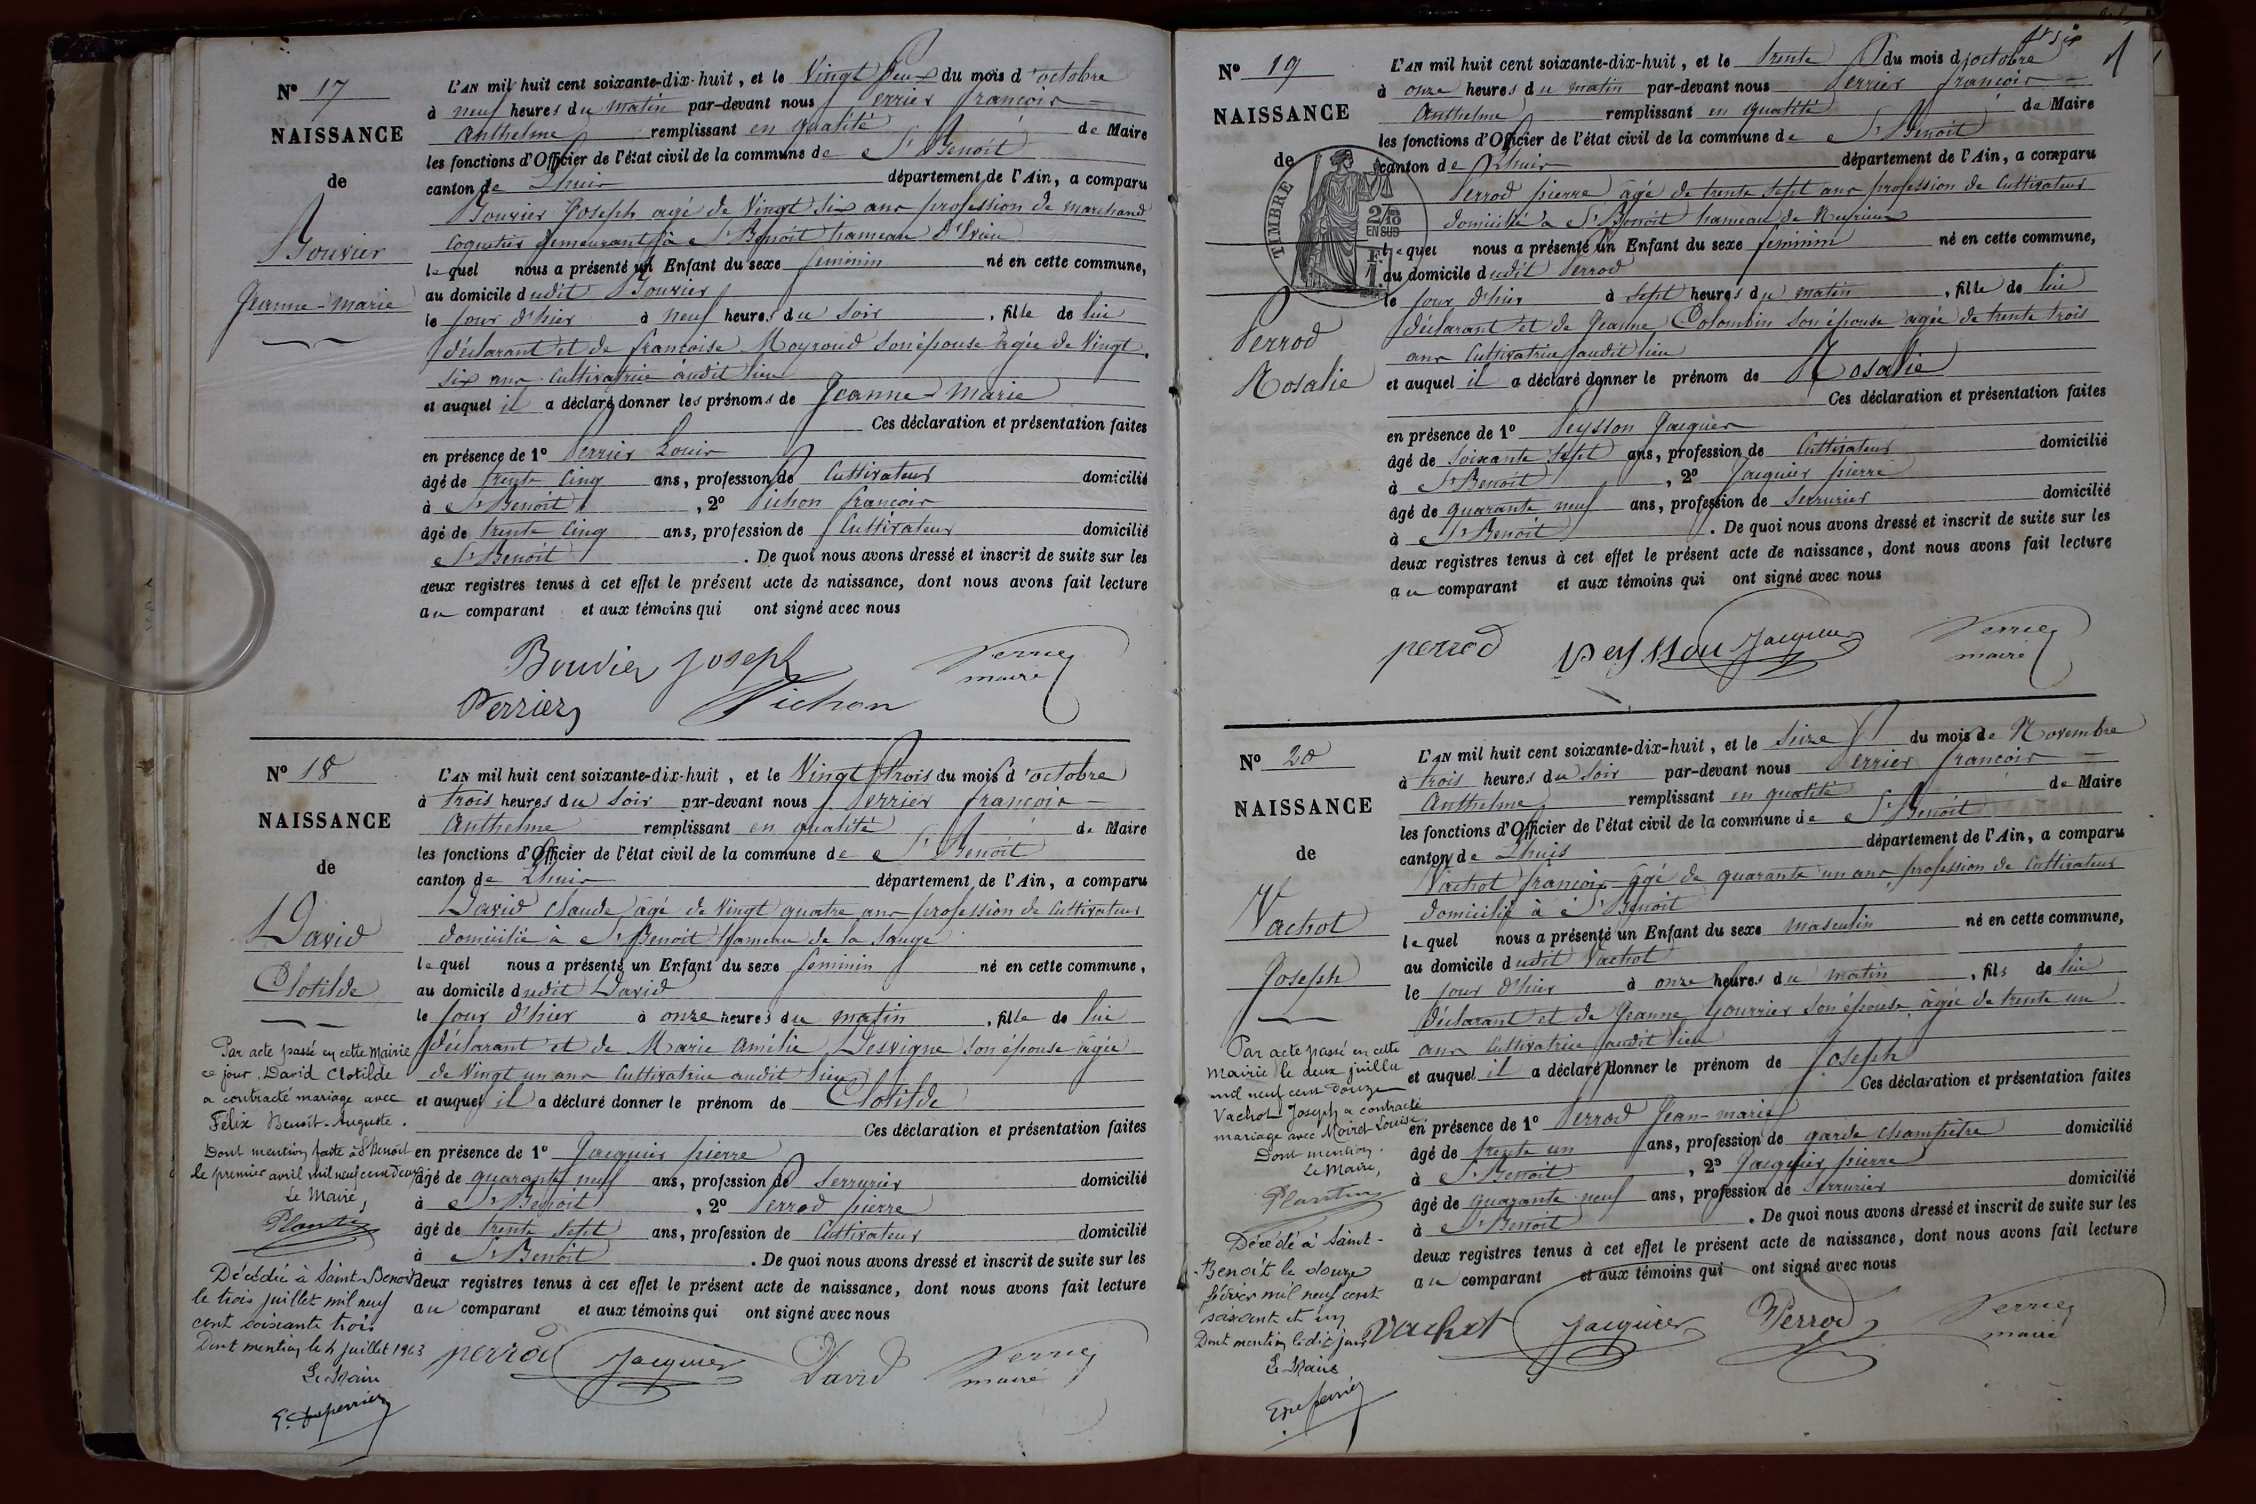 Nº 17
NAISSANCE
de
Bouvier
Jeanne-Marie
L'AN mil huit cent soixante-dix-huit, et le Vingt Deux du mois d'octobre
à neuf heures du matin par-devant nous Perrier françois
Anthelme remplissant en qualité de Maire
les fonctions d'Officier de l'état civil de la commune de St Benoit
canton de Lhuis département de l'Ain, a comparu
Bouvier Joseph agé de Vingt six ans profession de marchand
coquetier demeurant à St Benoit hameau d'Evieu
lequel nous a présenté un Enfant du sexe feminin né en cette commune,
au domicile dudit Bouvier
le jour d'hier à neuf heures du soir, fille de lui
déclarant et de françoise Moyroud son épouse agée de Vingt
six ans cultivatrice audit lieu
et auquel il a déclaré donner les prénoms de Jeanne-Marie
Ces déclaration et présentation faites
en présence de 1º Perrier Louis
âgé de trente cinq ans, profession de Cultivateur domicilié
à St Benoit, 2º Pichon françois
âgé de trente cinq ans, profession de Cultivateur domicilié
St Benoit. De quoi nous avons dressé et inscrit de suite sur les
deux registres tenus à cet effet le présent acte de naissance, dont nous avons fait lecture
au comparant et aux témoins qui ont signé avec nous
Bouvier Joseph Perrier
maire
Perrier Pichon
Nº 18
NAISSANCE
de
David
Clotilde
L'AN mil huit cent soixante-dix-huit, et le Vingt trois du mois d'octobre
à trois heures du soir par-devant nous Perrier françois
Anthelme remplissant en qualité de Maire
les fonctions d'Officier de l'état civil de la commune de St Benoit
canton de Lhuis département de l'Ain, a comparu
David claude agé de Vingt quatre ans profession de Cultivateur
domicilié à St Benoit hameau de la Sauge
lequel nous a présenté un Enfant du sexe feminin né en cette commune,
au domicile dudit David
le jour d'hier à onze heures du matin, fille de lui
déclarant et de Marie Amélie Desvigne son épouse agée
de Vingt un ans Cultivatrice audit lieu
et auquel il a déclaré donner le prénom de Clotilde
Ces déclaration et présentation faites
en présence de 1º Jacquier pierre
âgé de quarante neuf ans, profession de serrurier domicilié
à St Benoit, 2º Perrod pierre
âgé de trente sept ans, profession de Cultivateur domicilié
à St Benoit. De quoi nous avons dressé et inscrit de suite sur les
deux registres tenus à cet effet le présent acte de naissance, dont nous avons fait lecture
au comparant et aux témoins qui ont signé avec nous
perrod Jacquier David Perrier
maire
Par acte passé en cette Mairie
ce jour, David Clotilde
a contracté mariage avec
Félix Benoît-Auguste.
Dont mention faite à St Benoit
le premier avril mil neuf cent deux
Le Maire,
Plantin
Décédée à Saint-Benoit
le trois juillet mil neuf
cent soixante trois
Dont mention le 4 juillet 1963
Le Maire
Nº 19
NAISSANCE
de
Perrod
Rosalie
TIMBRE
2/10
EN SUS
L'AN mil huit cent soixante-dix-huit, et le trente du mois d'octobre
à onze heures du matin par-devant nous Perrier françois
Anthelme remplissant en qualité de Maire
les fonctions d'Officier de l'état civil de la commune de St Benoit
canton de Lhuis département de l'Ain, a comparu
Perrod pierre agé de trente sept ans profession de Cultivateur
domicilié à St Benoit hameau de Neyrieu
lequel nous a présenté un Enfant du sexe feminin né en cette commune,
au domicile dudit Perrod
le jour d'hier à sept heures du matin, fille de lui
déclarant et de Jeanne Colombin son épouse agée de trente trois
ans Cultivatrice audit lieu
et auquel il a déclaré donner le prénom de Rosalie
Ces déclaration et présentation faites
en présence de 1º Peysson Jacques
âgé de soixante sept ans, profession de Cultivateur domicilié
à St Benoit, 2º Jacquier pierre
âgé de quarante neuf ans, profession de serrurier domicilié
à St Benoit. De quoi nous avons dressé et inscrit de suite sur les
deux registres tenus à cet effet le présent acte de naissance, dont nous avons fait lecture
au comparant et aux témoins qui ont signé avec nous
perrod peysson Jacquier Perrier
maire
Nº 20
NAISSANCE
de
Vachot
Joseph
L'AN mil huit cent soixante-dix-huit, et le seize du mois de Novembre
à trois heures du soir par-devant nous Perrier françois
Anthelme remplissant en qualité de Maire
les fonctions d'Officier de l'état civil de la commune de St Benoit
canton de Lhuis département de l'Ain, a comparu
Vachot françois agé de quarante un ans profession de Cultivateur
domicilié à St Benoit
lequel nous a présenté un Enfant du sexe masculin né en cette commune,
au domicile dudit Vachot
le jour d'hier à onze heures du matin, fils de lui
déclarant et de Jeanne Gourrier son épouse agée de trente un
ans Cultivatrice audit lieu
et auquel il a déclaré donner le prénom de Joseph
Ces déclaration et présentation faites
en présence de 1º Perrod Jean-marie
âgé de trente un ans, profession de garde champêtre domicilié
à St Benoit, 2º Jacquier pierre
âgé de quarante neuf ans, profession de serrurier domicilié
à St Benoit. De quoi nous avons dressé et inscrit de suite sur les
deux registres tenus à cet effet le présent acte de naissance, dont nous avons fait lecture
au comparant et aux témoins qui ont signé avec nous
Vachot Jacquier Perrod Perrier
maire
Par acte passé en cette
Mairie le deux juillet
mil neuf cent douze
Vachot Joseph a contracté
mariage avec Moiret Louise.
Dont mention.
Le Maire,
Plantin
Décédé à Saint-
Benoit le douze
février mil neuf cent
soixante et un
Dont mention le dit jour
Le Maire